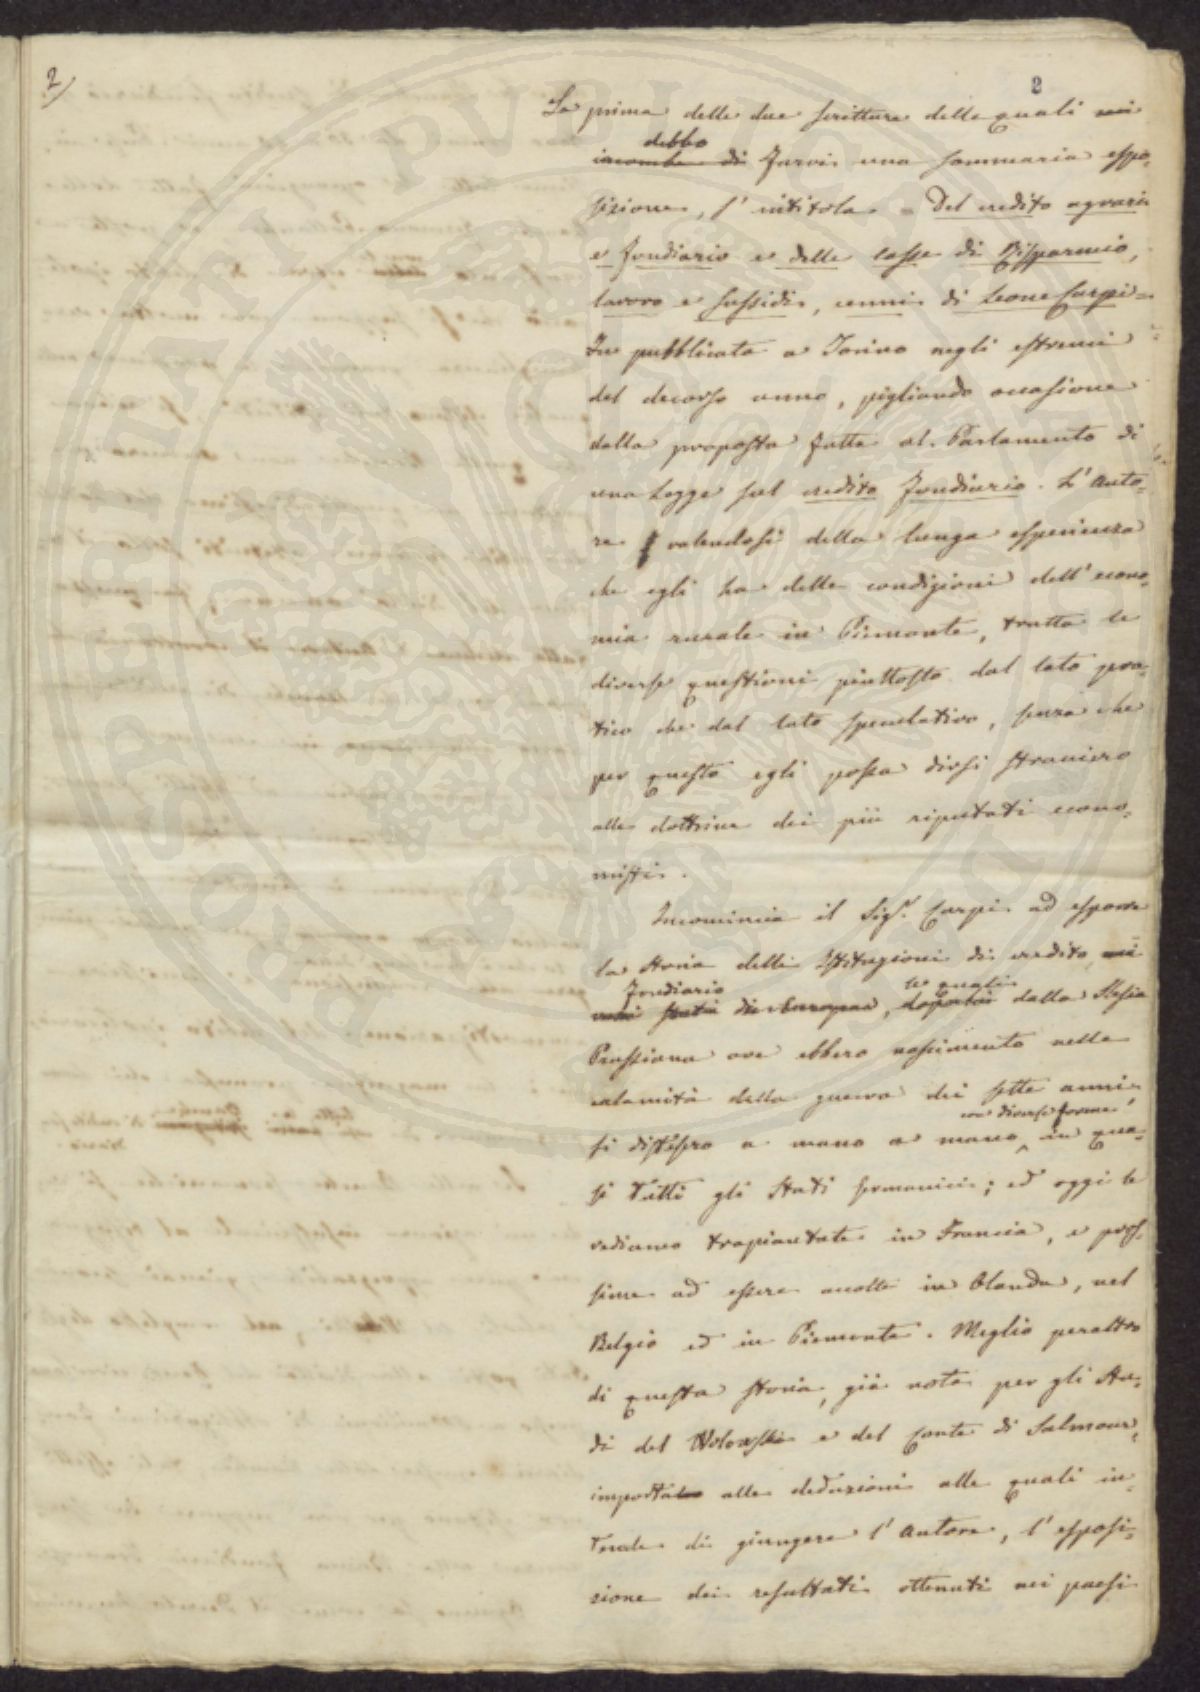 2)
2
La prima delle due scritture delle quali mi
debbo
incombe di farvi una sommaria espo-
sizione, s'intitola = Del credito agrario
e fondiario e delle casse di Risparmio,
lavoro e sussidi, cenni di Leone Carpi =
Fu pubblicata a Torino negli estremi
del decorso anno, pigliando occasione
dalla proposta fatta al Parlamento di
una Legge sul credito fondiario. L'Auto-
re valendosi della lunga esperienza
che egli ha delle condizioni dell'econo-
mia rurale in Piemonte, tratta le
diverse questioni piuttosto dal lato pra-
tico che dal lato speculativo, senza che
per questo egli possa dirsi straniero
alle dottrine dei più riputati econo-
misti.
Incomincia il Sigr. Carpi ad esporre
la storia delle Istituzioni di credito nei
fondiario le quali
varii Stati di Europa, dapoichè dalla Slesia
Prussiana ove ebbero nascimento nelle
calamità della guerra dei sette anni,
con diverse forme
si distesero a mano a mano, in qua-
si tutti gli Stati germanici; ed oggi le
vediamo trapiantate in Francia, e pros-
sime ad essere accolte in Olanda, nel
Belgio ed in Piemonte. Meglio peraltro
di questa storia, già nota per gli Stu-
di del Wolowski e del Conte di Salmour,
importa alle deduzioni alle quali in-
tende di giungere l'Autore, l'esposi-
zione dei resultati ottenuti nei paesi